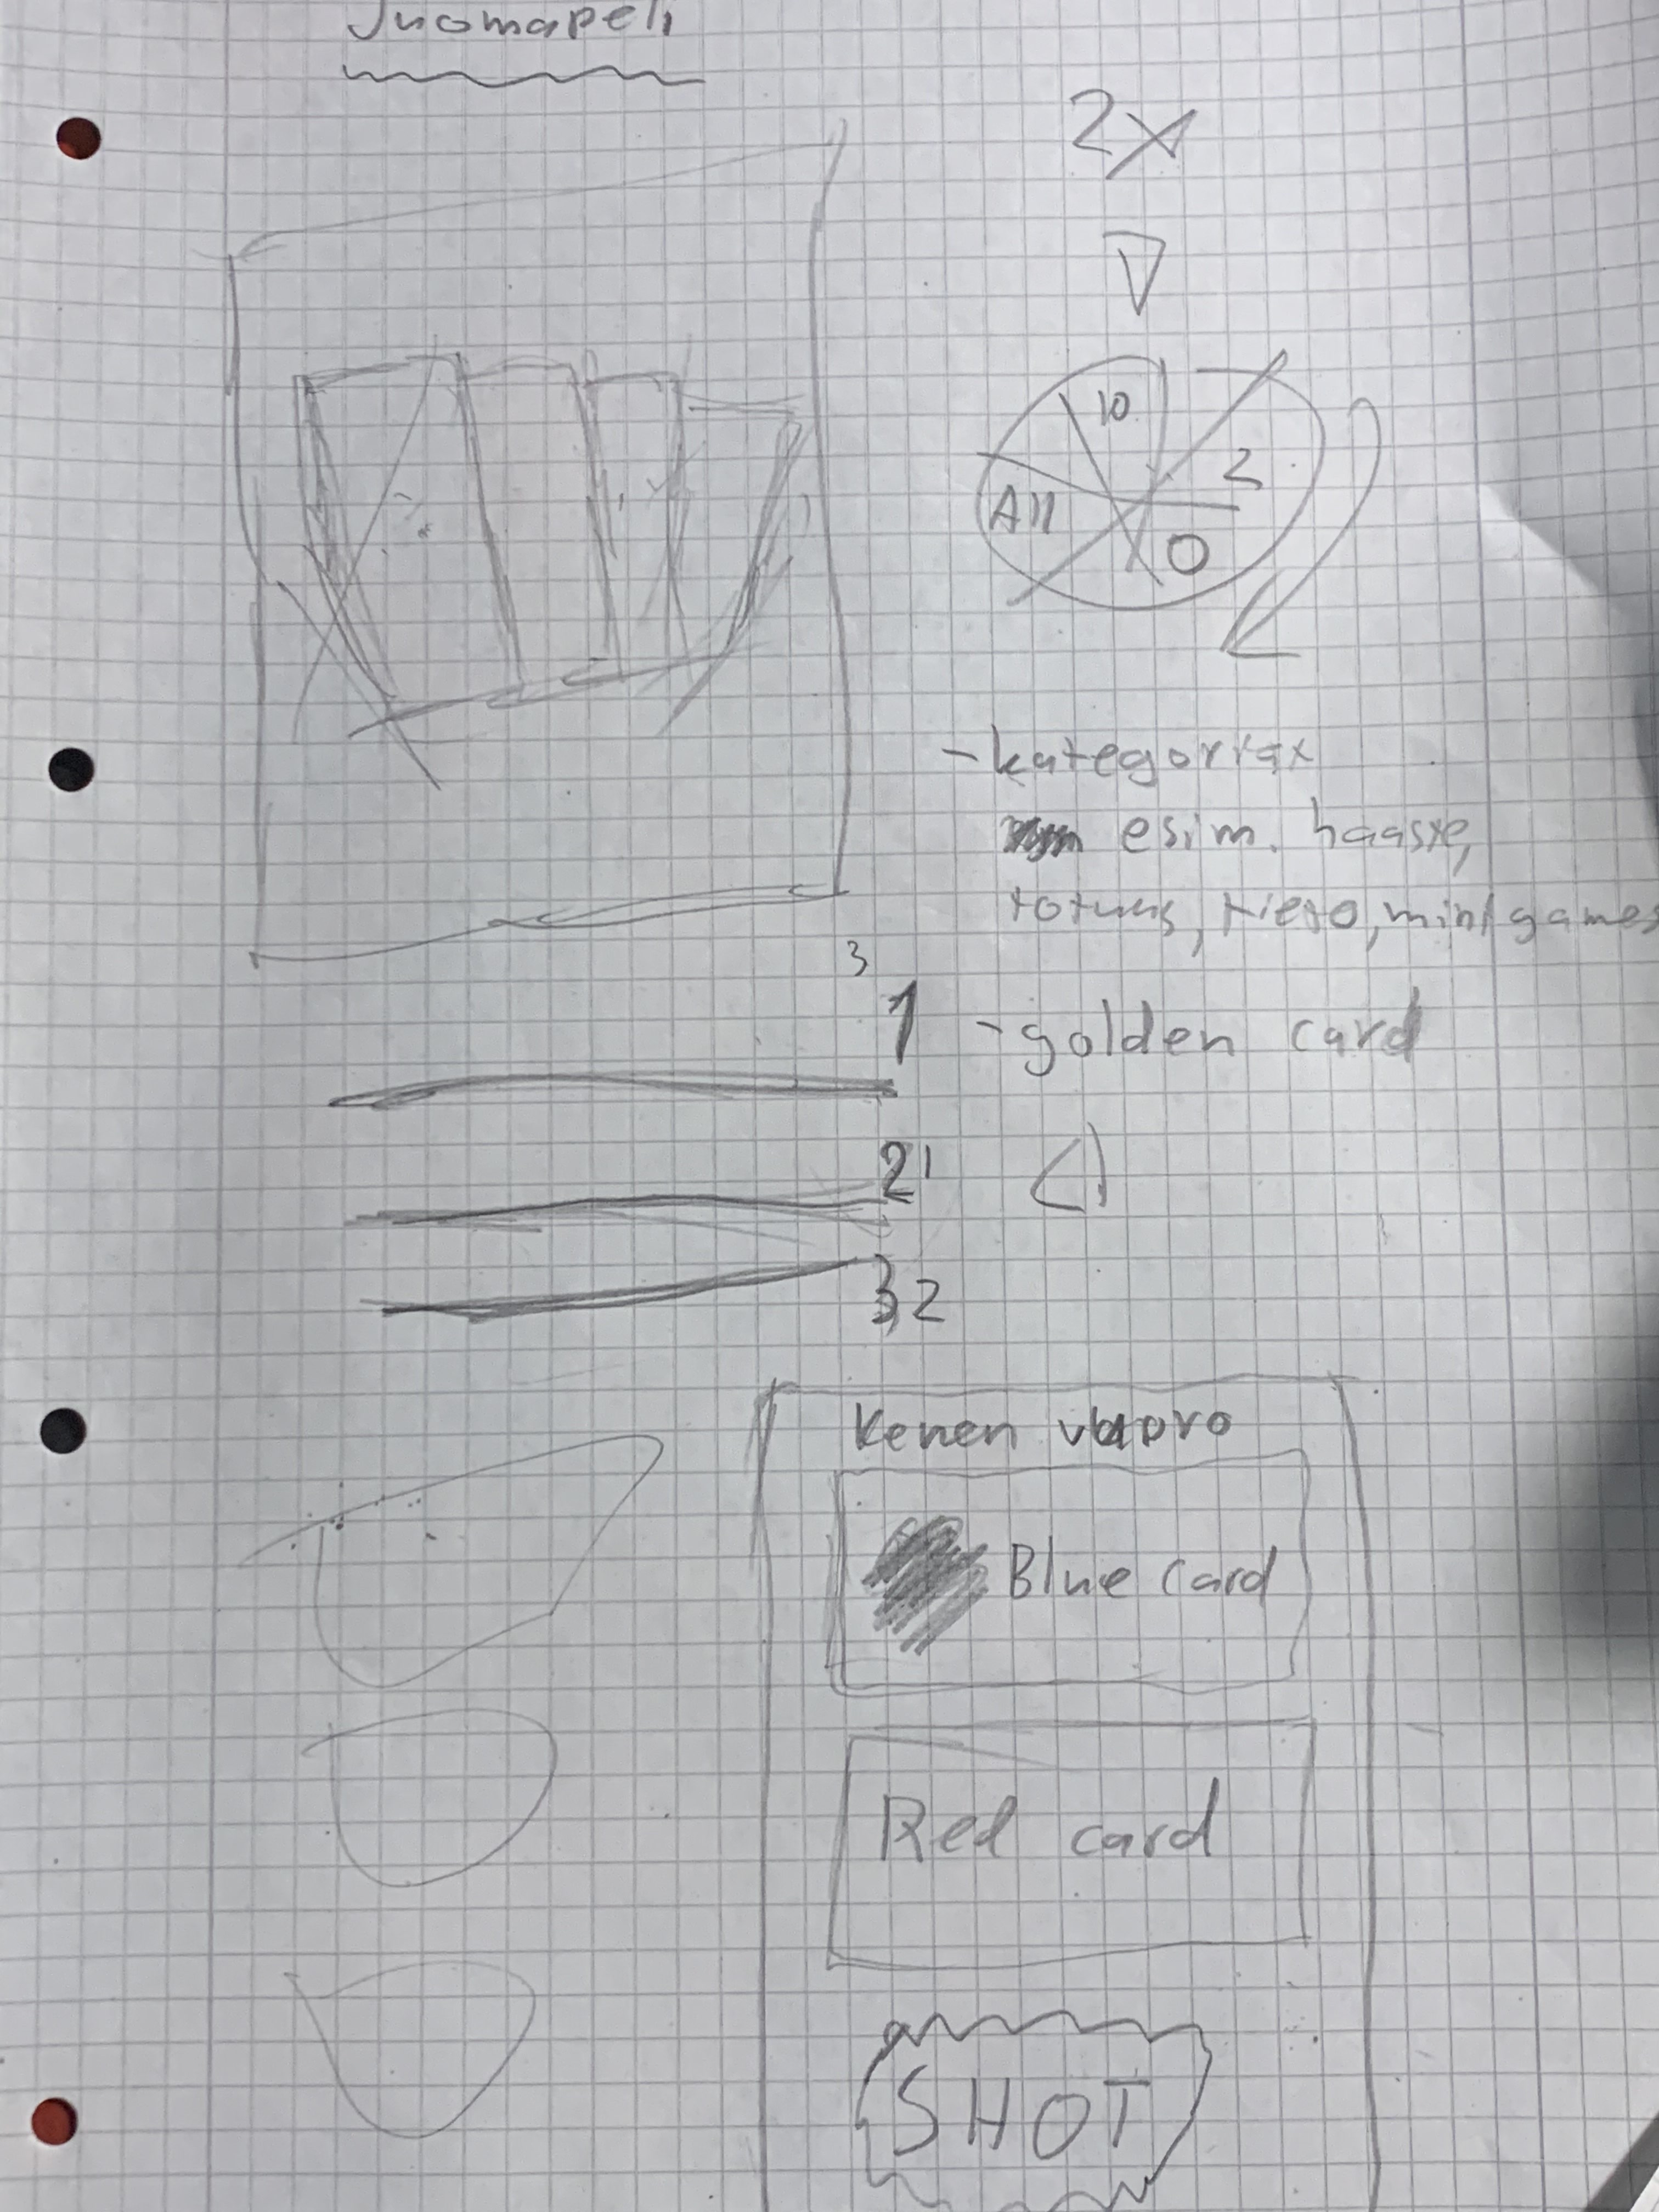 Juomapeli
2x
10
2
All
0
-kategoriax
esim. haaste,
totuus, tieto, minigames
3
1 -golden card
2 1
3, 2
Kenen vuoro
Blue card
Red card
SHOT